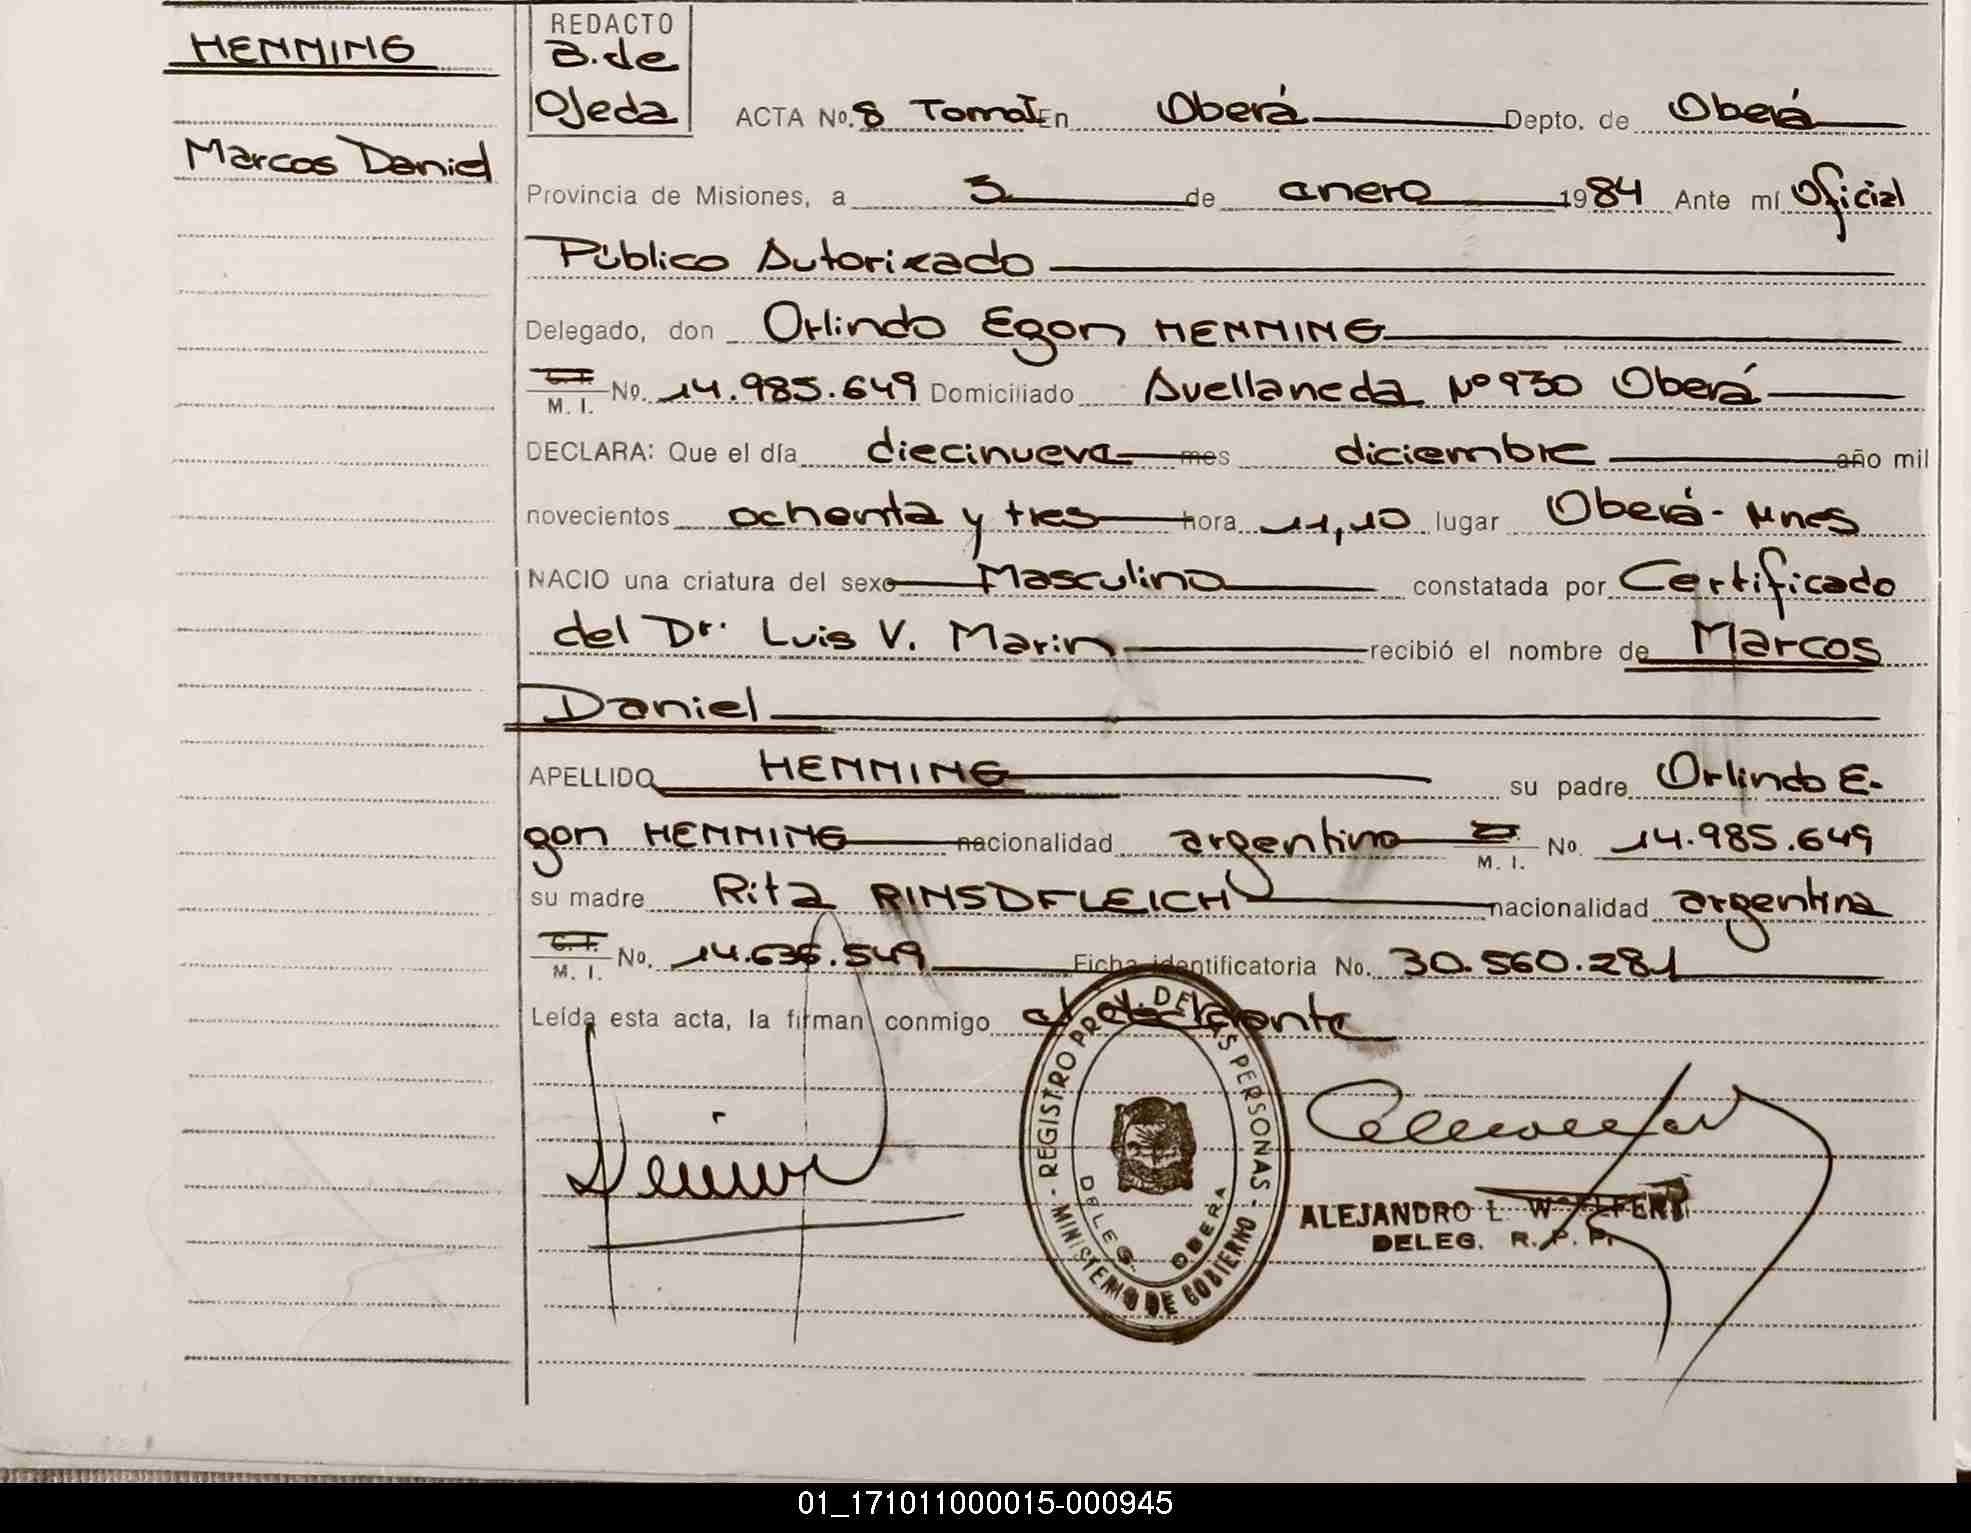 HENNING
Marcos Daniel
REDACTO
B. de
Ojeda
ACTA No. 8 Tomo I En Oberá Depto. de Oberá
Provincia de Misiones, a 3 de enero 1984 Ante mí Oficial
Público Autorizado
Delegado, don Orlindo Egon HENNING
C. I. M. I. No. 14.985.649 Domiciliado Avellaneda Nº 930 Oberá
DECLARA: Que el día diecinueve mes diciembre año mil
novecientos ochenta y tres hora 11,10 lugar Oberá - Mnes
NACIO una criatura del sexo Masculino constatada por Certificado
del Dr. Luis V. Marin recibió el nombre de Marcos
Daniel
APELLIDO HENNING su padre Orlindo E-
gon HENNING nacionalidad argentina M. I. No. 14.985.649
su madre Rita RINSDFLEICH nacionalidad argentina
C. I. M. I. No. 14.636.549 Ficha identificatoria No. 30.560.281
Leída esta acta, la firman conmigo el declarante
REGISTRO PROV. DE LAS PERSONAS
MINISTERIO DE GOBIERNO
DELEG. OBERA
ALEJANDRO L.
DELEG. R. P. P.
01_171011000015-000945